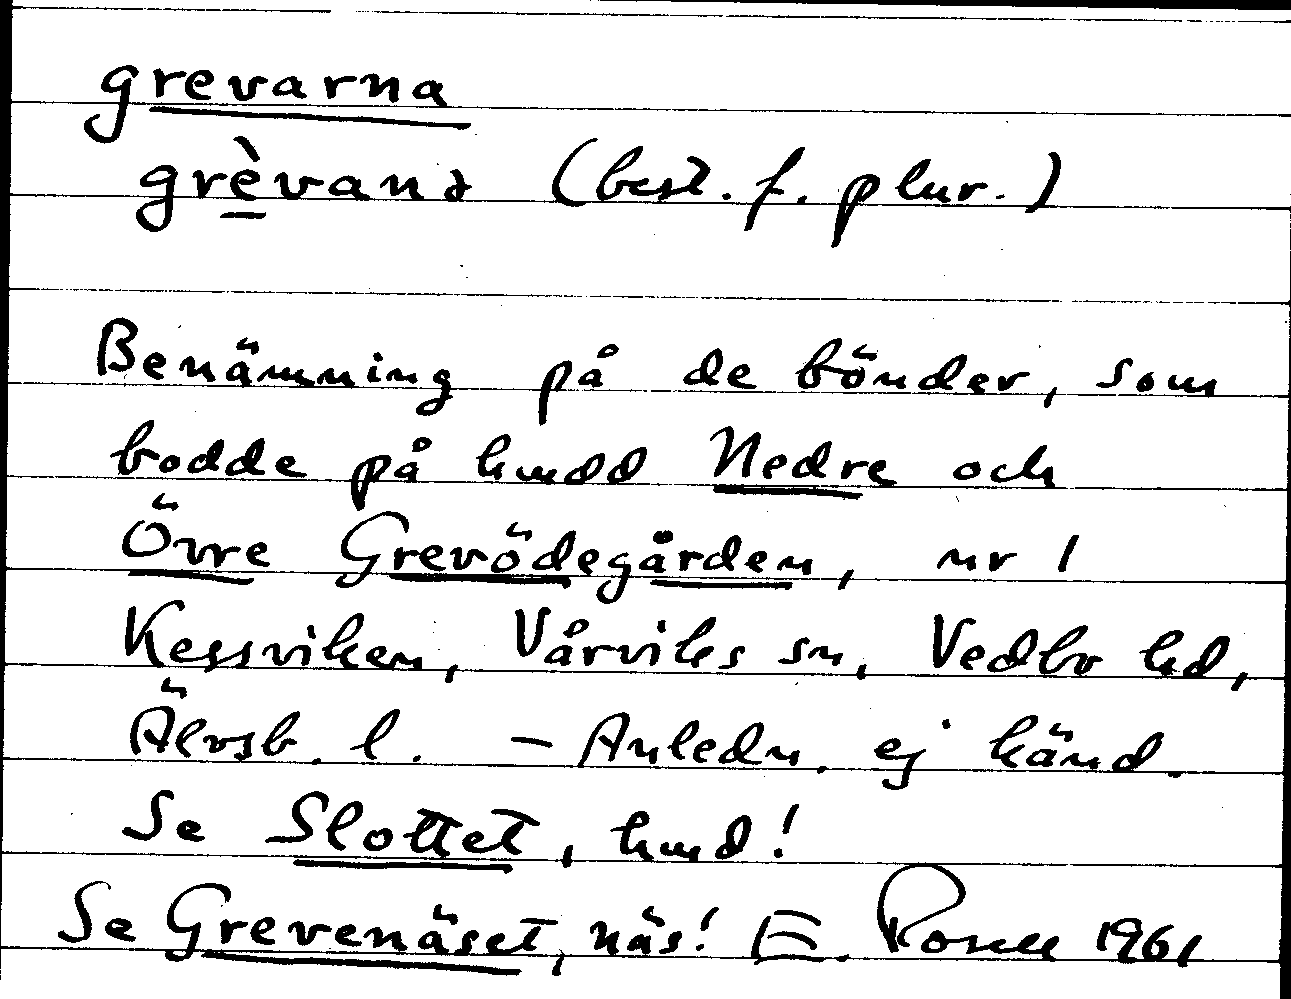 grevarna
grèvanə (best. f. plur.)
Benämning på de bönder, som
bodde på hmdd Nedre och
Övre Grevödegården, nr 1
Kessviken, Vårviks sn, Vedbo hd,
Älvsb. l. – Anledn. ej känd.
Se Slottet, hmd!
Se Grevenäset, näs! E. 1961